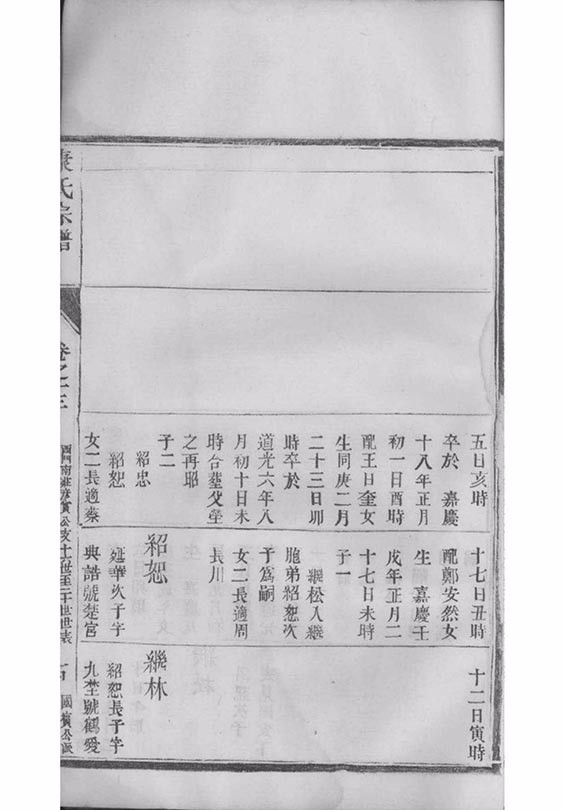 五日亥時
卒於 嘉慶
十八年正月
初一日酉時
配王日奎女
生同庚二月
二十三日卯
時卒於
道光六年八
月初十日未
時合塟父塋
之再昭
子二
紹忠
紹恕
女二長適蔡
十七日丑時
配鄭安然女
生 嘉慶壬
戌年正月二
十七日未時
子一
繼松入繼
胞弟紹恕次
子為嗣
女二長適周
長川
紹恕
延華次子字
典誥號楚宮
十二日寅時
繼林
紹恕長子字
九埜號鶴愛
康氏宗譜
卷之三